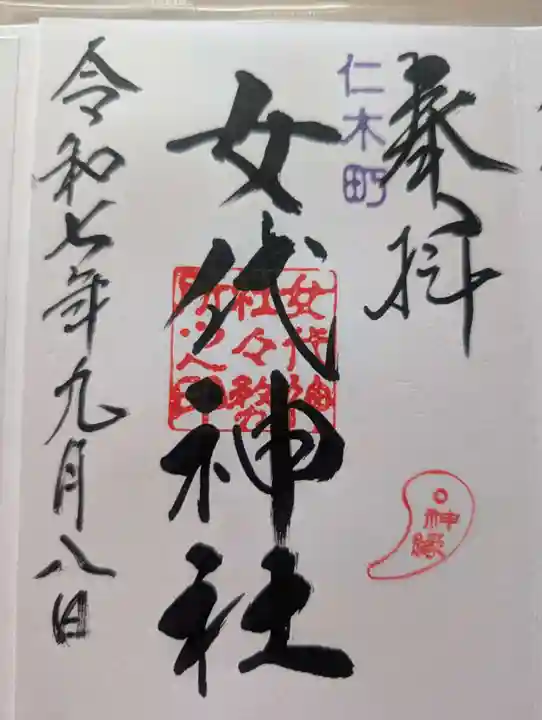 奉拝
仁木町
女代神社
女代神
社々務
所之印
神縁
令和七年九月八日